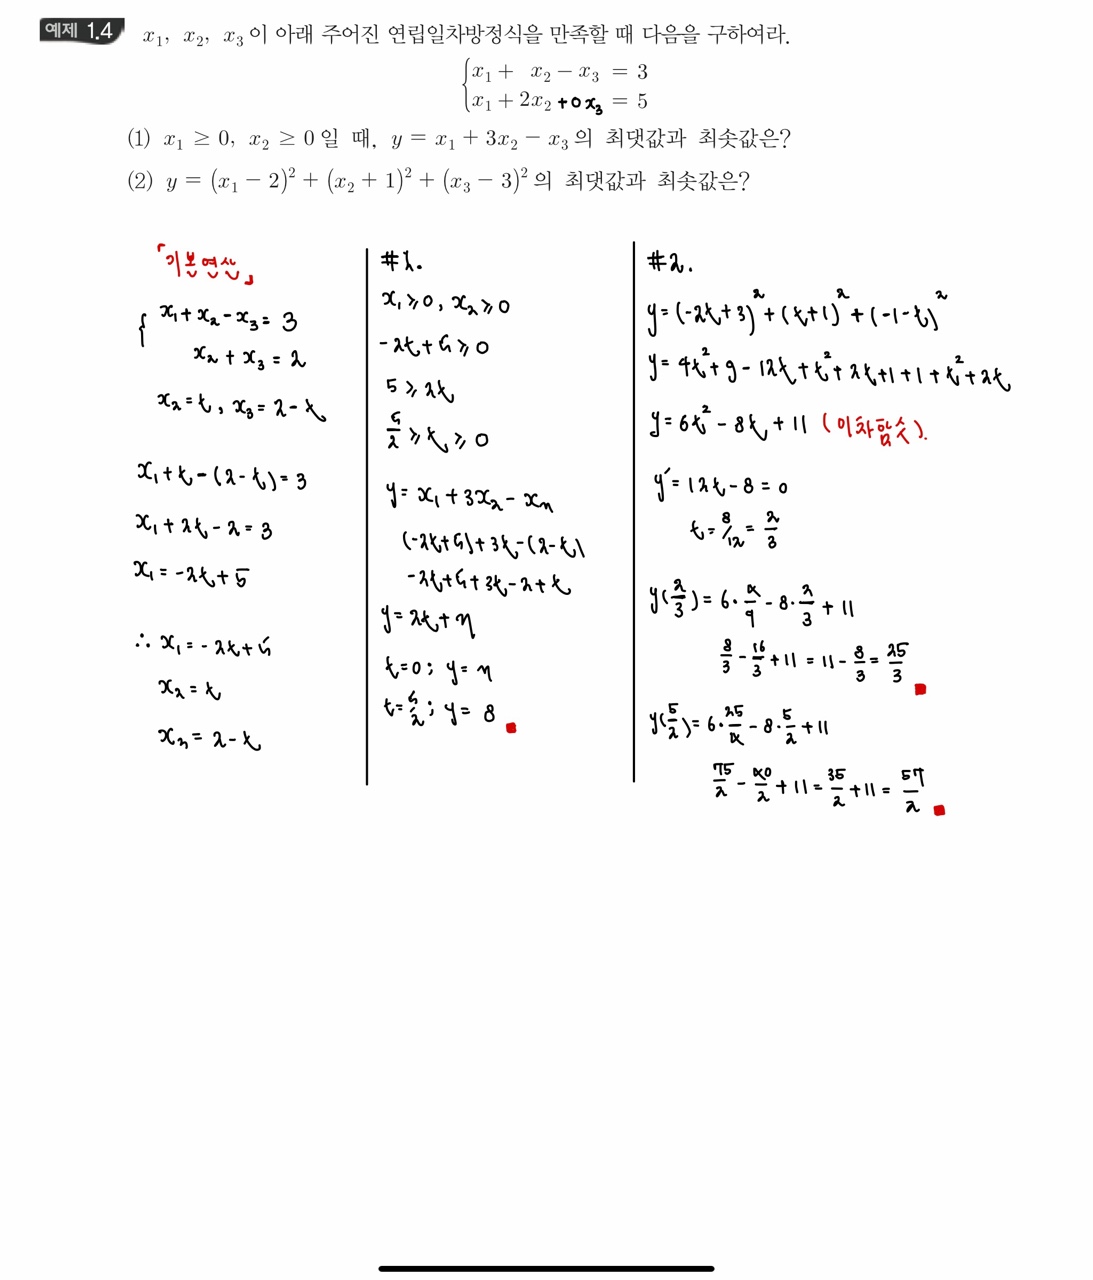 예제 1.4 x₁, x₂, x₃이 아래 주어진 연립일차방정식을 만족할 때 다음을 구하여라.
x₁ + x₂ − x₃ = 3
x₁ + 2x₂ +0x₃ = 5
(1) x₁ ≥ 0, x₂ ≥ 0일 때, y = x₁ + 3x₂ − x₃의 최댓값과 최솟값은?
(2) y = (x₁ − 2)² + (x₂ + 1)² + (x₃ − 3)²의 최댓값과 최솟값은?
「기본연산」
x₁+x₂-x₃=3
x₂+x₃=2
x₂=t, x₃=2-t
x₁+t-(2-t)=3
x₁+2t-2=3
x₁=-2t+5
∴ x₁=-2t+5
x₂=t
x₃=2-t
#1.
x₁≥0, x₂≥0
-2t+5≥0
5≥2t
5/2≥t≥0
y=x₁+3x₂-x₃
(-2t+5)+3t-(2-t)
-2t+5+3t-2+t
y=2t+3
t=0; y=3
t=5/2; y=8
#2.
y=(-2t+3)²+(t+1)²+(-1-t)²
y=4t²+9-12t+t²+2t+1+1+t²+2t
y=6t²-8t+11 (이차함수).
y′=12t-8=0
t=8/12=2/3
y(2/3)=6·4/9-8·2/3+11
8/3-16/3+11=11-8/3=25/3
y(5/2)=6·25/4-8·5/2+11
75/2-40/2+11=35/2+11=57/2